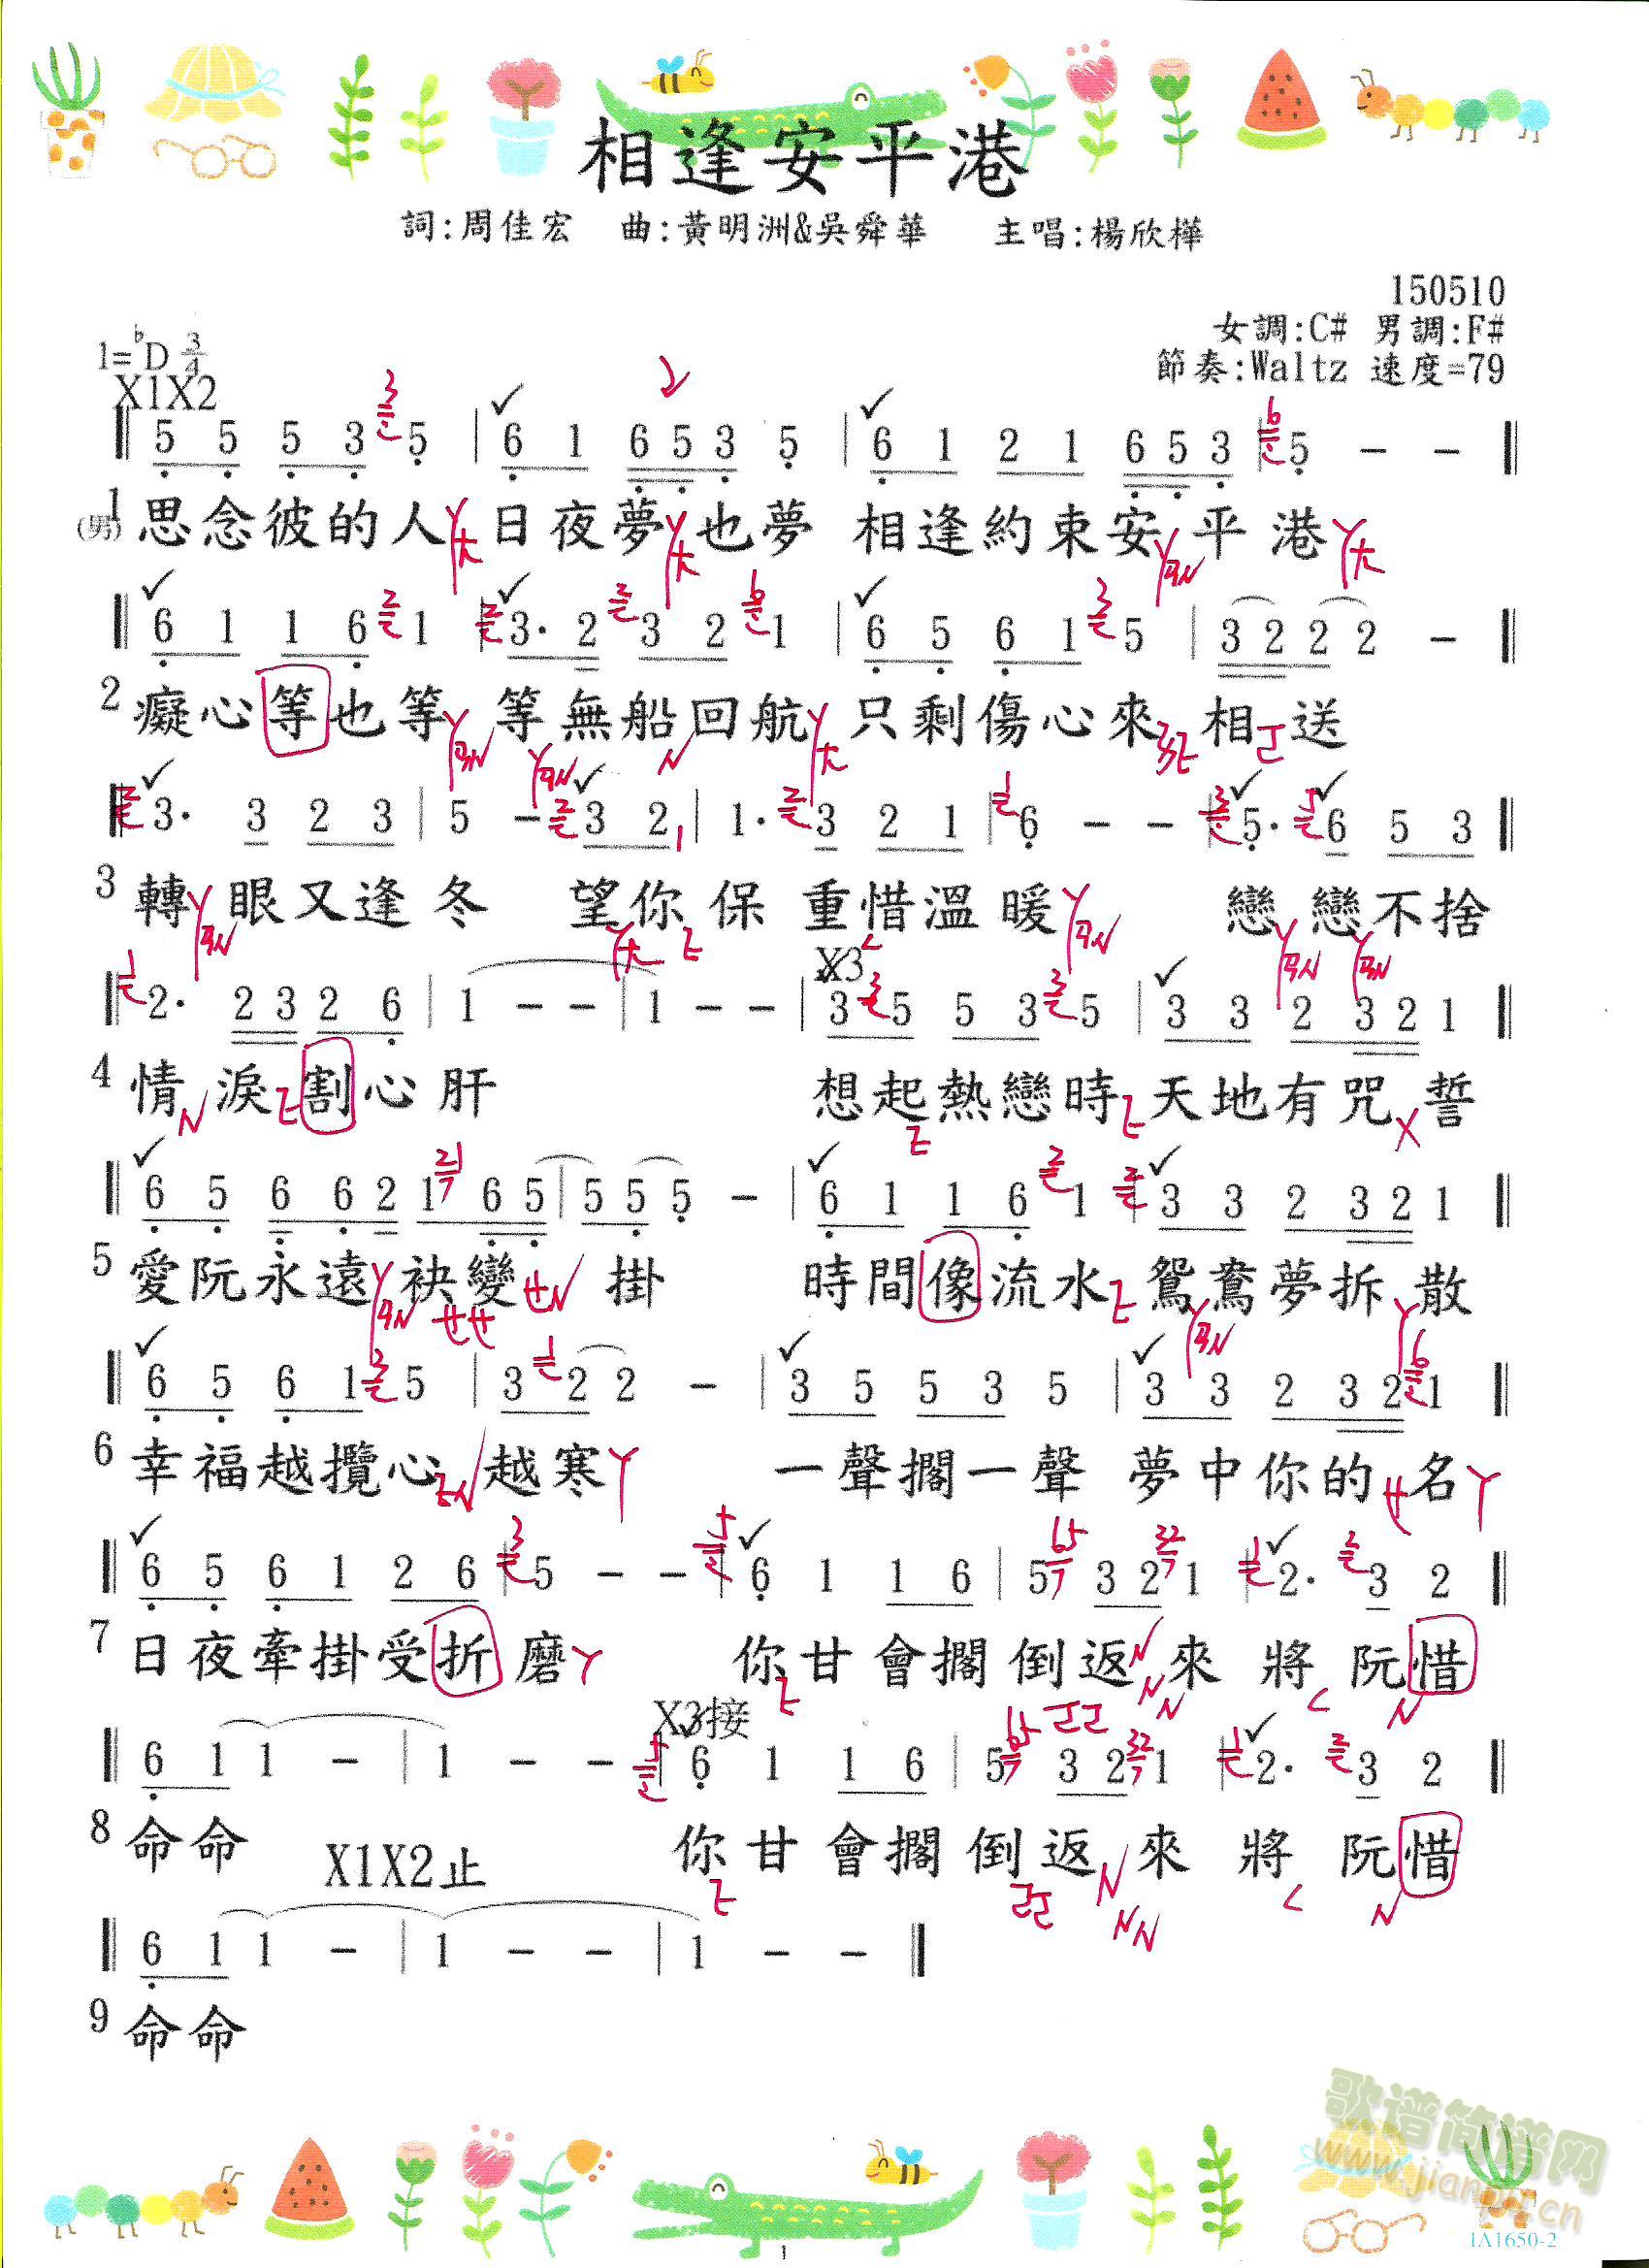 相逢安平港
詞:周佳宏 曲:黃明洲&吳舜華 主唱:楊欣樺
150510
女調:C# 男調:F#
1=♭D 3/4 節奏:Waltz 速度=79
X1X2
5 5 5 3 5 | 6 1 6 5 3 5 | 6 1 2 1 6 5 3 | 5 - -
1 (男) 思念彼的人 日夜夢也夢 相逢約束安平港
6 1 1 6 1 | 3· 2 3 2 1 | 6 5 6 1 5 | 3 2 2 2 -
2 癡心等也等 等無船回航 只剩傷心來相送
3· 3 2 3 | 5 - 3 2 | 1· 3 2 1 | 6 - - | 5· 6 5 3
3 轉眼又逢冬 望你保重惜溫暖 戀戀不捨
X3
2· 2 3 2 6 | 1 - - | 1 - - | 3 5 5 3 5 | 3 3 2 3 2 1
4 情淚割心肝 想起熱戀時 天地有咒誓
6 5 6 6 2 1 6 5 | 5 5 5 - | 6 1 1 6 1 | 3 3 2 3 2 1
5 愛阮永遠袂變掛 時間像流水 鴛鴦夢拆散
6 5 6 1 5 | 3 2 2 - | 3 5 5 3 5 | 3 3 2 3 2 1
6 幸福越攬心越寒 一聲擱一聲 夢中你的名
6 5 6 1 2 6 | 5 - - | 6 1 1 6 | 5 3 2 1 | 2· 3 2
7 日夜牽掛受折磨 你甘會擱倒返來將阮惜
X3接
6 1 1 - | 1 - - | 6 1 1 6 | 5 3 2 1 | 2· 3 2
8 命命 X1X2止 你甘會擱倒返來將阮惜
6 1 1 - | 1 - - | 1 - -
9 命命
歌谱简谱网
www.jianpu.cn
IA1650-2
1